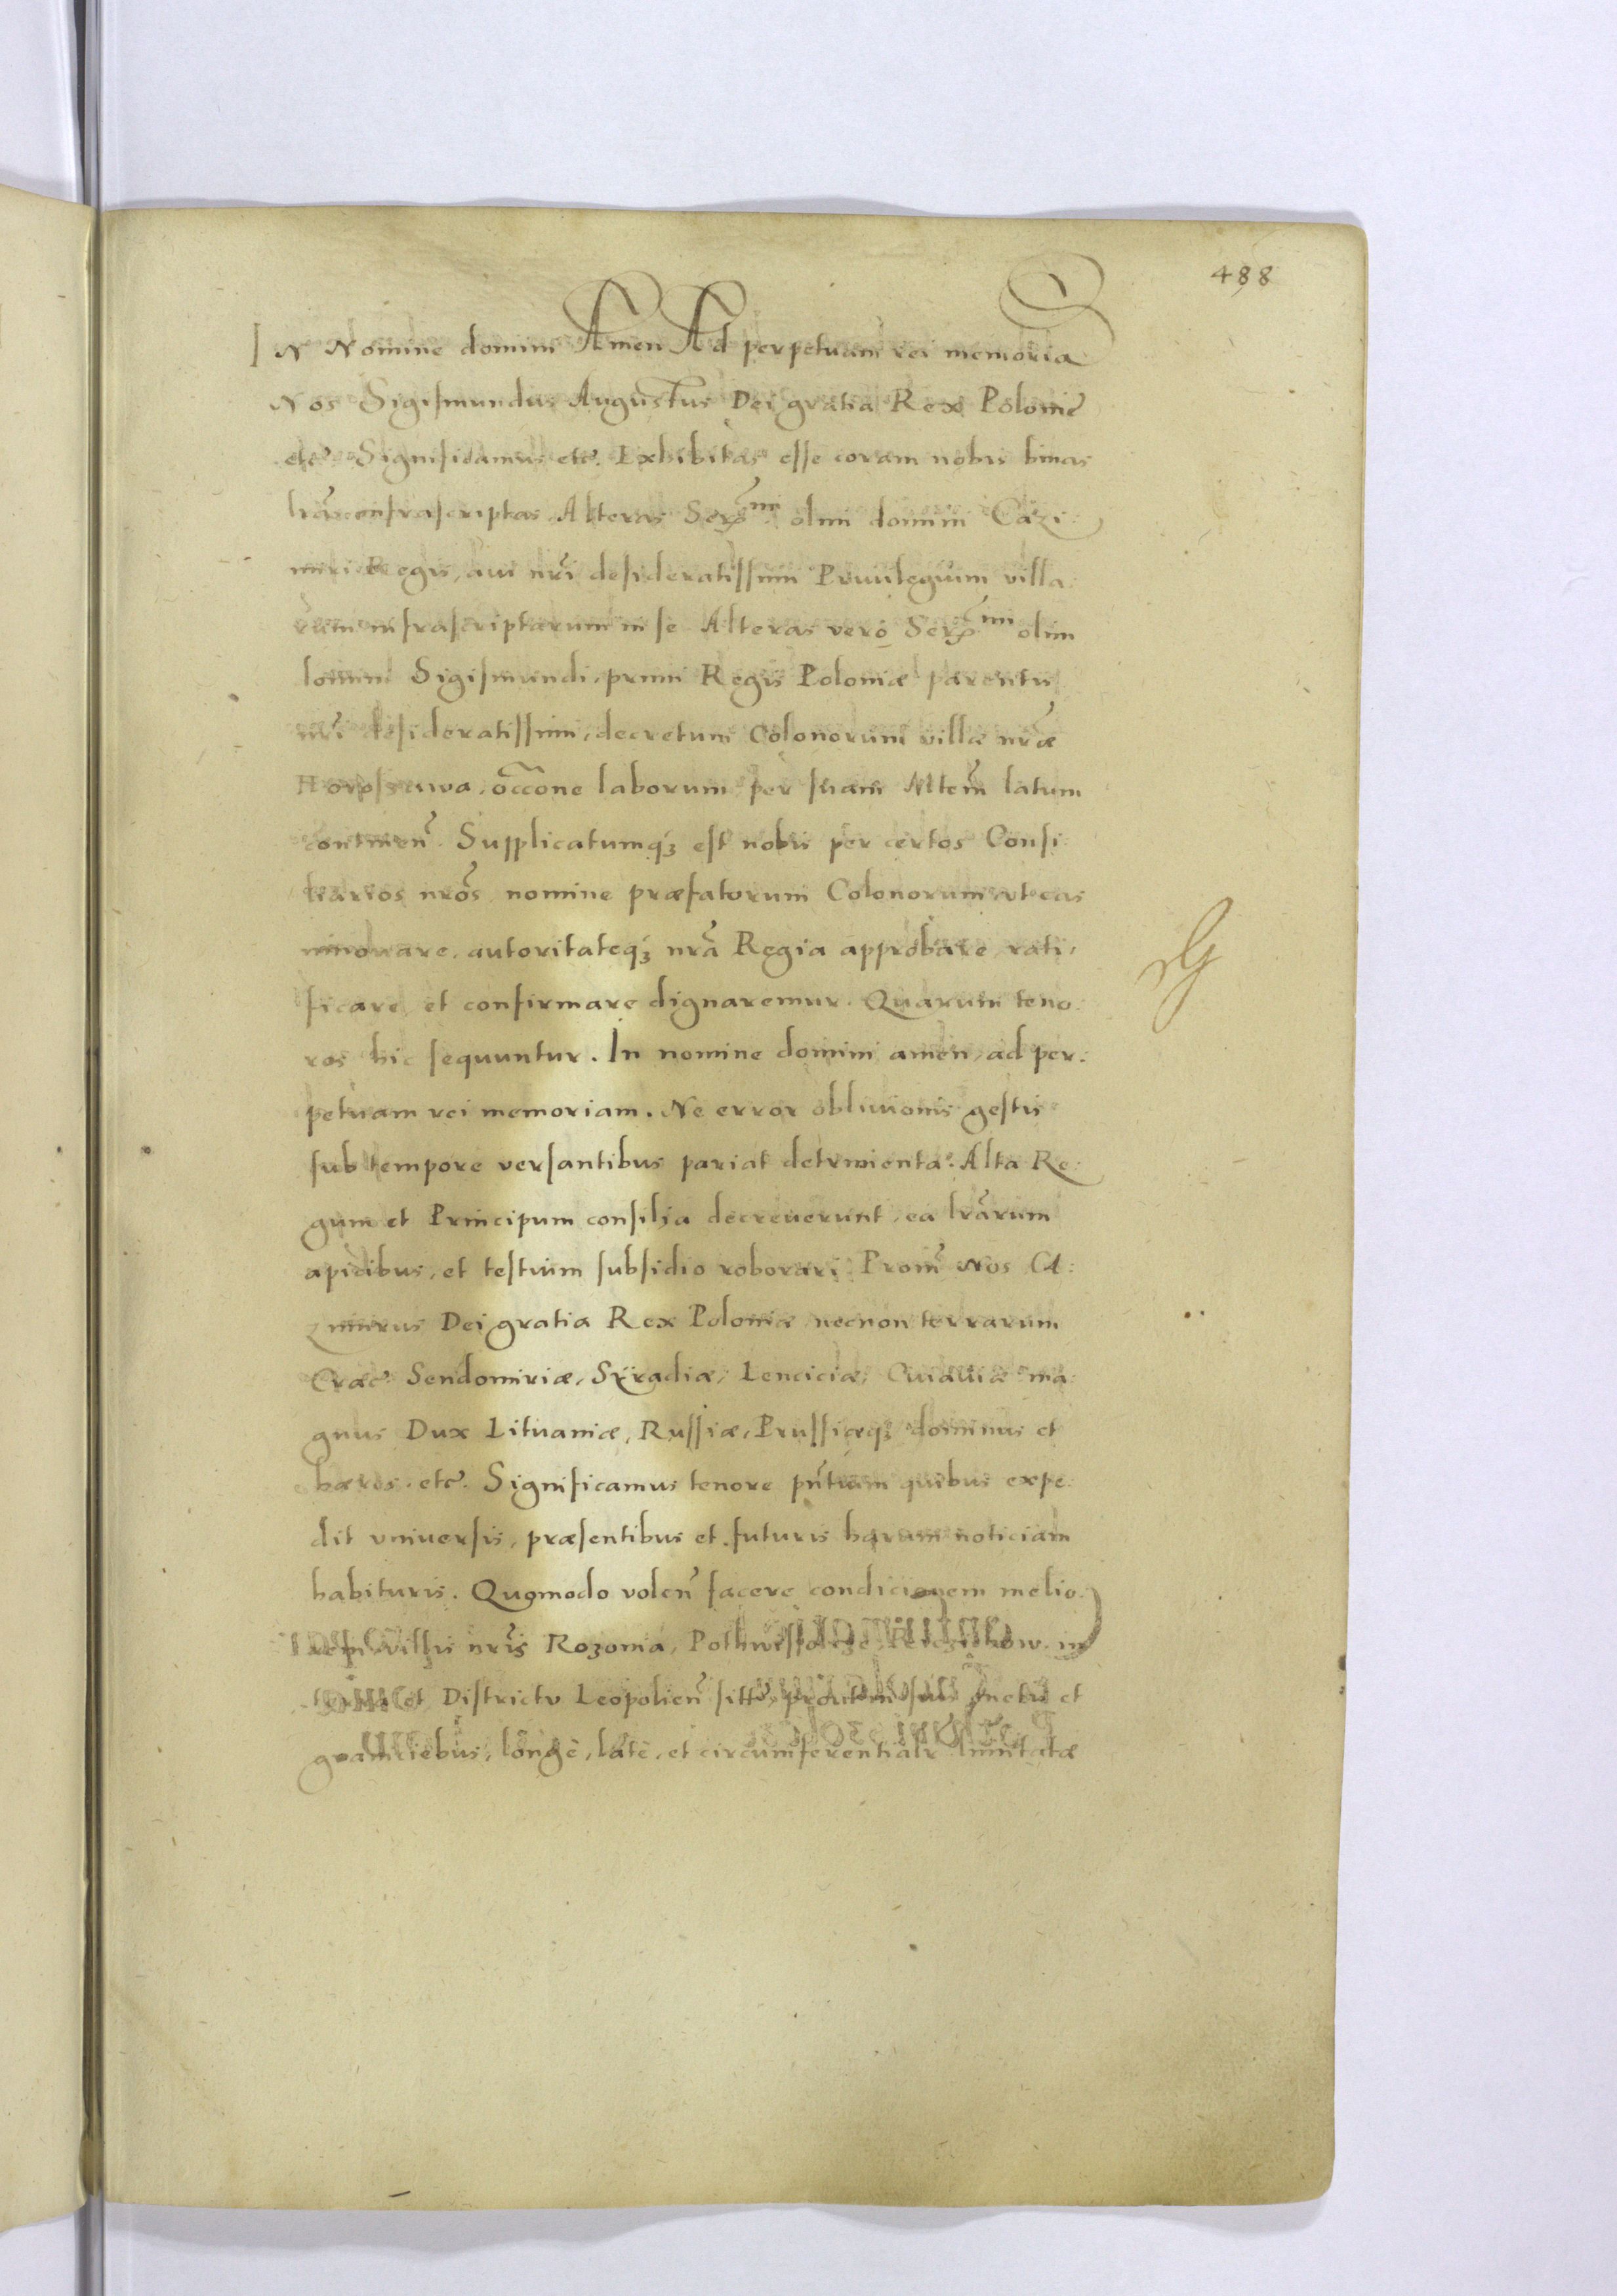 488
IN Nomine domini Amen Ad perpetuam rei memoria
Nos Sigismundus Augustus Dei gratia Rex Poloniẽ
etc̃ Significamus etc̃. Exhibitas esse coram nobis binas
lrãs infrascriptas Alteras Serꝫ̃mi olim domini Cazi:
miri Regis, aui nrĩ desideratissimi Priuilegium villa:
rum infrascriptarum in se Alteras verò Serꝫ̃mi olim
domini Sigismundi, primi Regis Poloniæ parentis
nrĩ desideratissimi, decretum Colonorum villæ nræ̃
occõne laborum per suam Mltem̃ latum
continen̄. Supplicatumqꝫ est nobis per certos Consi:
liarios nrõs nomine præfatorum Colonorum ut eas
innouare, autoritateqꝫ nrã Regia approbare, rati,
ficare et confirmare dignaremur. Quarum teno:
res hic sequuntur. In nomine domini amen, ad per:
petuam rei memoriam. Ne error obliuionis gestis
sub tempore versantibus pariat detrimenta. Alta Re:
gum et Principum consilia decreuerunt, ea lrãrum
apicibus, et testium subsidio roborari Proin̄ Nos CA:
zimirus Dei gratia Rex Poloniæ necnon terrarum
Crac̃. Sendomiriæ, Syradiæ, Lenciciæ, Cuiauiæ ma:
gnus Dux Lituaniæ, Russiæ, Prussiæqꝫ dominus et
hæres. etc̃. Significamus tenore pñtium quibus expe:
dit vniuersis, præsentibus et futuris harum noticiam
habituris. Quomodo volen̄ facere condicionem melio:
rem villis nrĩs Rozoma, in
terra et Districtu Leopolien̄ sitt̃, prout in suis metis et
graniciebus, longè, latè, et circumferentialr̃ limitatæ